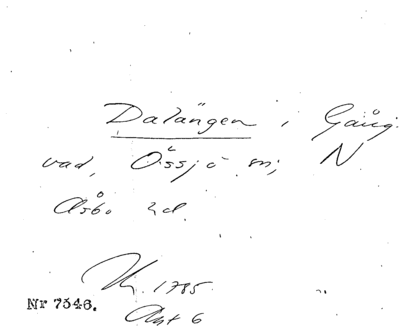 Dalängen i Gång-
vad, Össjö sn; N
Åsbo hd.
1785
Nr 7546. Akt 6